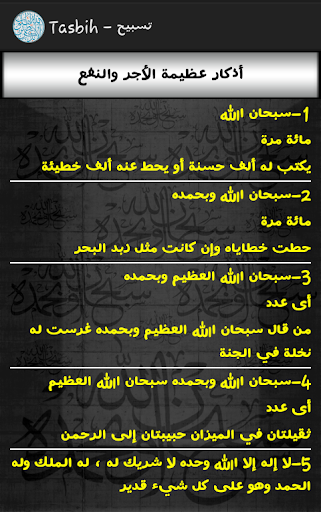 Tasbih - تسبيح
أذكار عظيمة الأجر والنفع
1-سبحان الله
مائة مرة
يكتب له ألف حسنة أو يحط عنه ألف خطيئة
2-سبحان الله وبحمده
مائة مرة
حطت خطاياه وإن كانت مثل زبد البحر
3-سبحان الله العظيم وبحمده
أى عدد
من قال سبحان الله العظيم وبحمده غرست له
نخلة في الجنة
4-سبحان الله وبحمده سبحان الله العظيم
أى عدد
ثقيلتان في الميزان حبيبتان إلى الرحمن
5-لا إله إلا الله وحده لا شريك له ، له الملك وله
الحمد وهو على كل شيء قدير